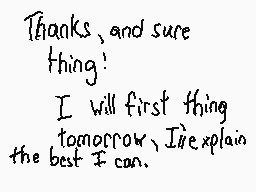 Thanks, and sure
thing!
I will first thing
tomorrow, I'ie explain
the best I can.